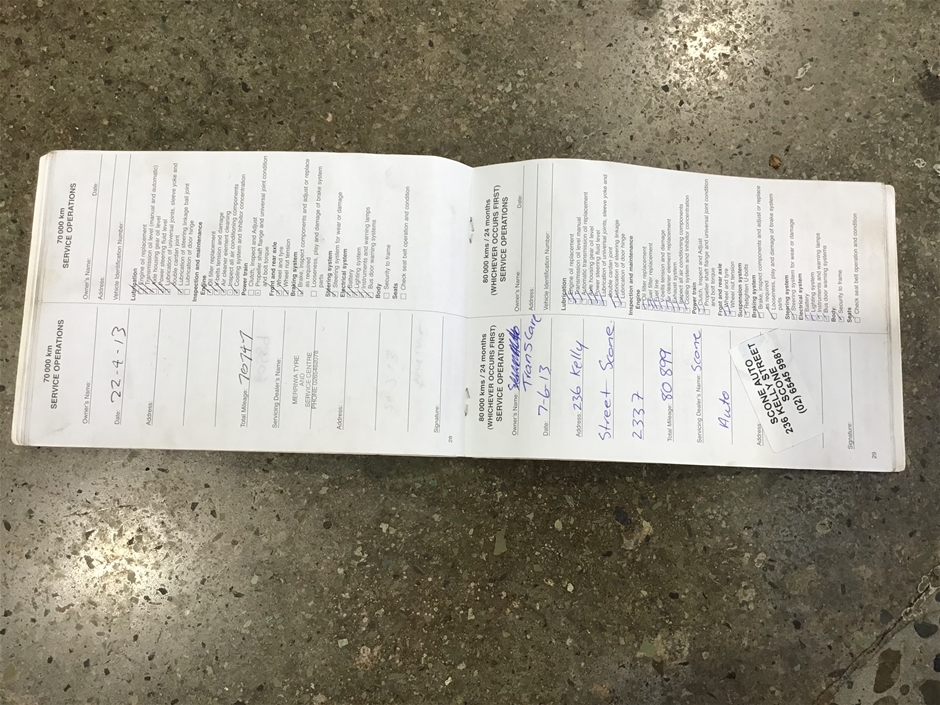 70 000 km
SERVICE OPERATIONS
Owner's Name:
Date: 22-4-13
Address:
Total Mileage: 70747
Servicing Dealer's Name:
MERRIWA TYRE
AND
SERVICE CENTRE
Address:
Signature:
28
70 000 km
SERVICE OPERATIONS
Owner's Name: Date:
Address:
Vehicle Identification Number:
Lubrication
Engine oil replacement
Transmission oil level (manual and automatic)
Differential oil level
Power steering fluid level
Lubrication of universal joints, sleeve yoke and
double cardan joint
Lubrication of steering linkage ball joint
Lubrication of door hinge
Inspection and maintenance
Engine
Oil filter replacement
V-belts tension and damage
Inspect all air conditioning components
Cooling system and inhibitor concentration
Power train
Clutch, Inspect and Adjust
Propeller shaft flange and universal joint condition
and bolt torque
Front and rear axle
Wheel and tyre
Wheel nut tension
Braking system
Brake, inspect components and adjust or replace
as required
Looseness, play and damage of brake system
parts
Steering system
Steering system for wear or damage
Electrical system
Lighting system
Instruments and warning lamps
Bus door warning systems
Body
Security to frame
Seats
Check seat belt operation and condition
80 000 kms / 24 months
(WHICHEVER OCCURS FIRST)
SERVICE OPERATIONS
Owner's Name:
Transcare
Date:
7-6-13
Address: 236 Kelly
Street Scone
2337
Total Mileage: 80899
Servicing Dealer's Name: Scone
Auto
Address:
SCONE AUTO
236 KELLY STREET
SCONE
(02) 6545 9981
Signature:
29
80 000 kms / 24 months
(WHICHEVER OCCURS FIRST)
SERVICE OPERATIONS
Owner's Name: Date:
Address:
Vehicle Identification Number:
Lubrication
Engine oil replacement
Differential oil level
Automatic transmission oil replacement
Power steering fluid level
Lubrication of universal joints, sleeve yoke and
double cardan joint
Lubrication of steering linkage
Lubrication of door hinge
Inspection and maintenance
Engine
Oil filter replacement
Fuel filter replacement
Air cleaner element replacement
Inspect all air conditioning components
Cooling system and inhibitor concentration
Power train
Clutch, Inspect and Adjust
Propeller shaft flange and universal joint condition
and bolt torque
Front and rear axle
Wheel and tyre
Wheel nut tension
Suspension system
Retighten, U-bolts
Braking system
Brake, inspect components and adjust or replace
as required
Looseness, play and damage of brake system
parts
Steering system
Steering system for wear or damage
Electrical system
Battery
Lighting system
Instruments and warning lamps
Bus door warning systems
Body
Security to frame
Seats
Check seat belt operation and condition